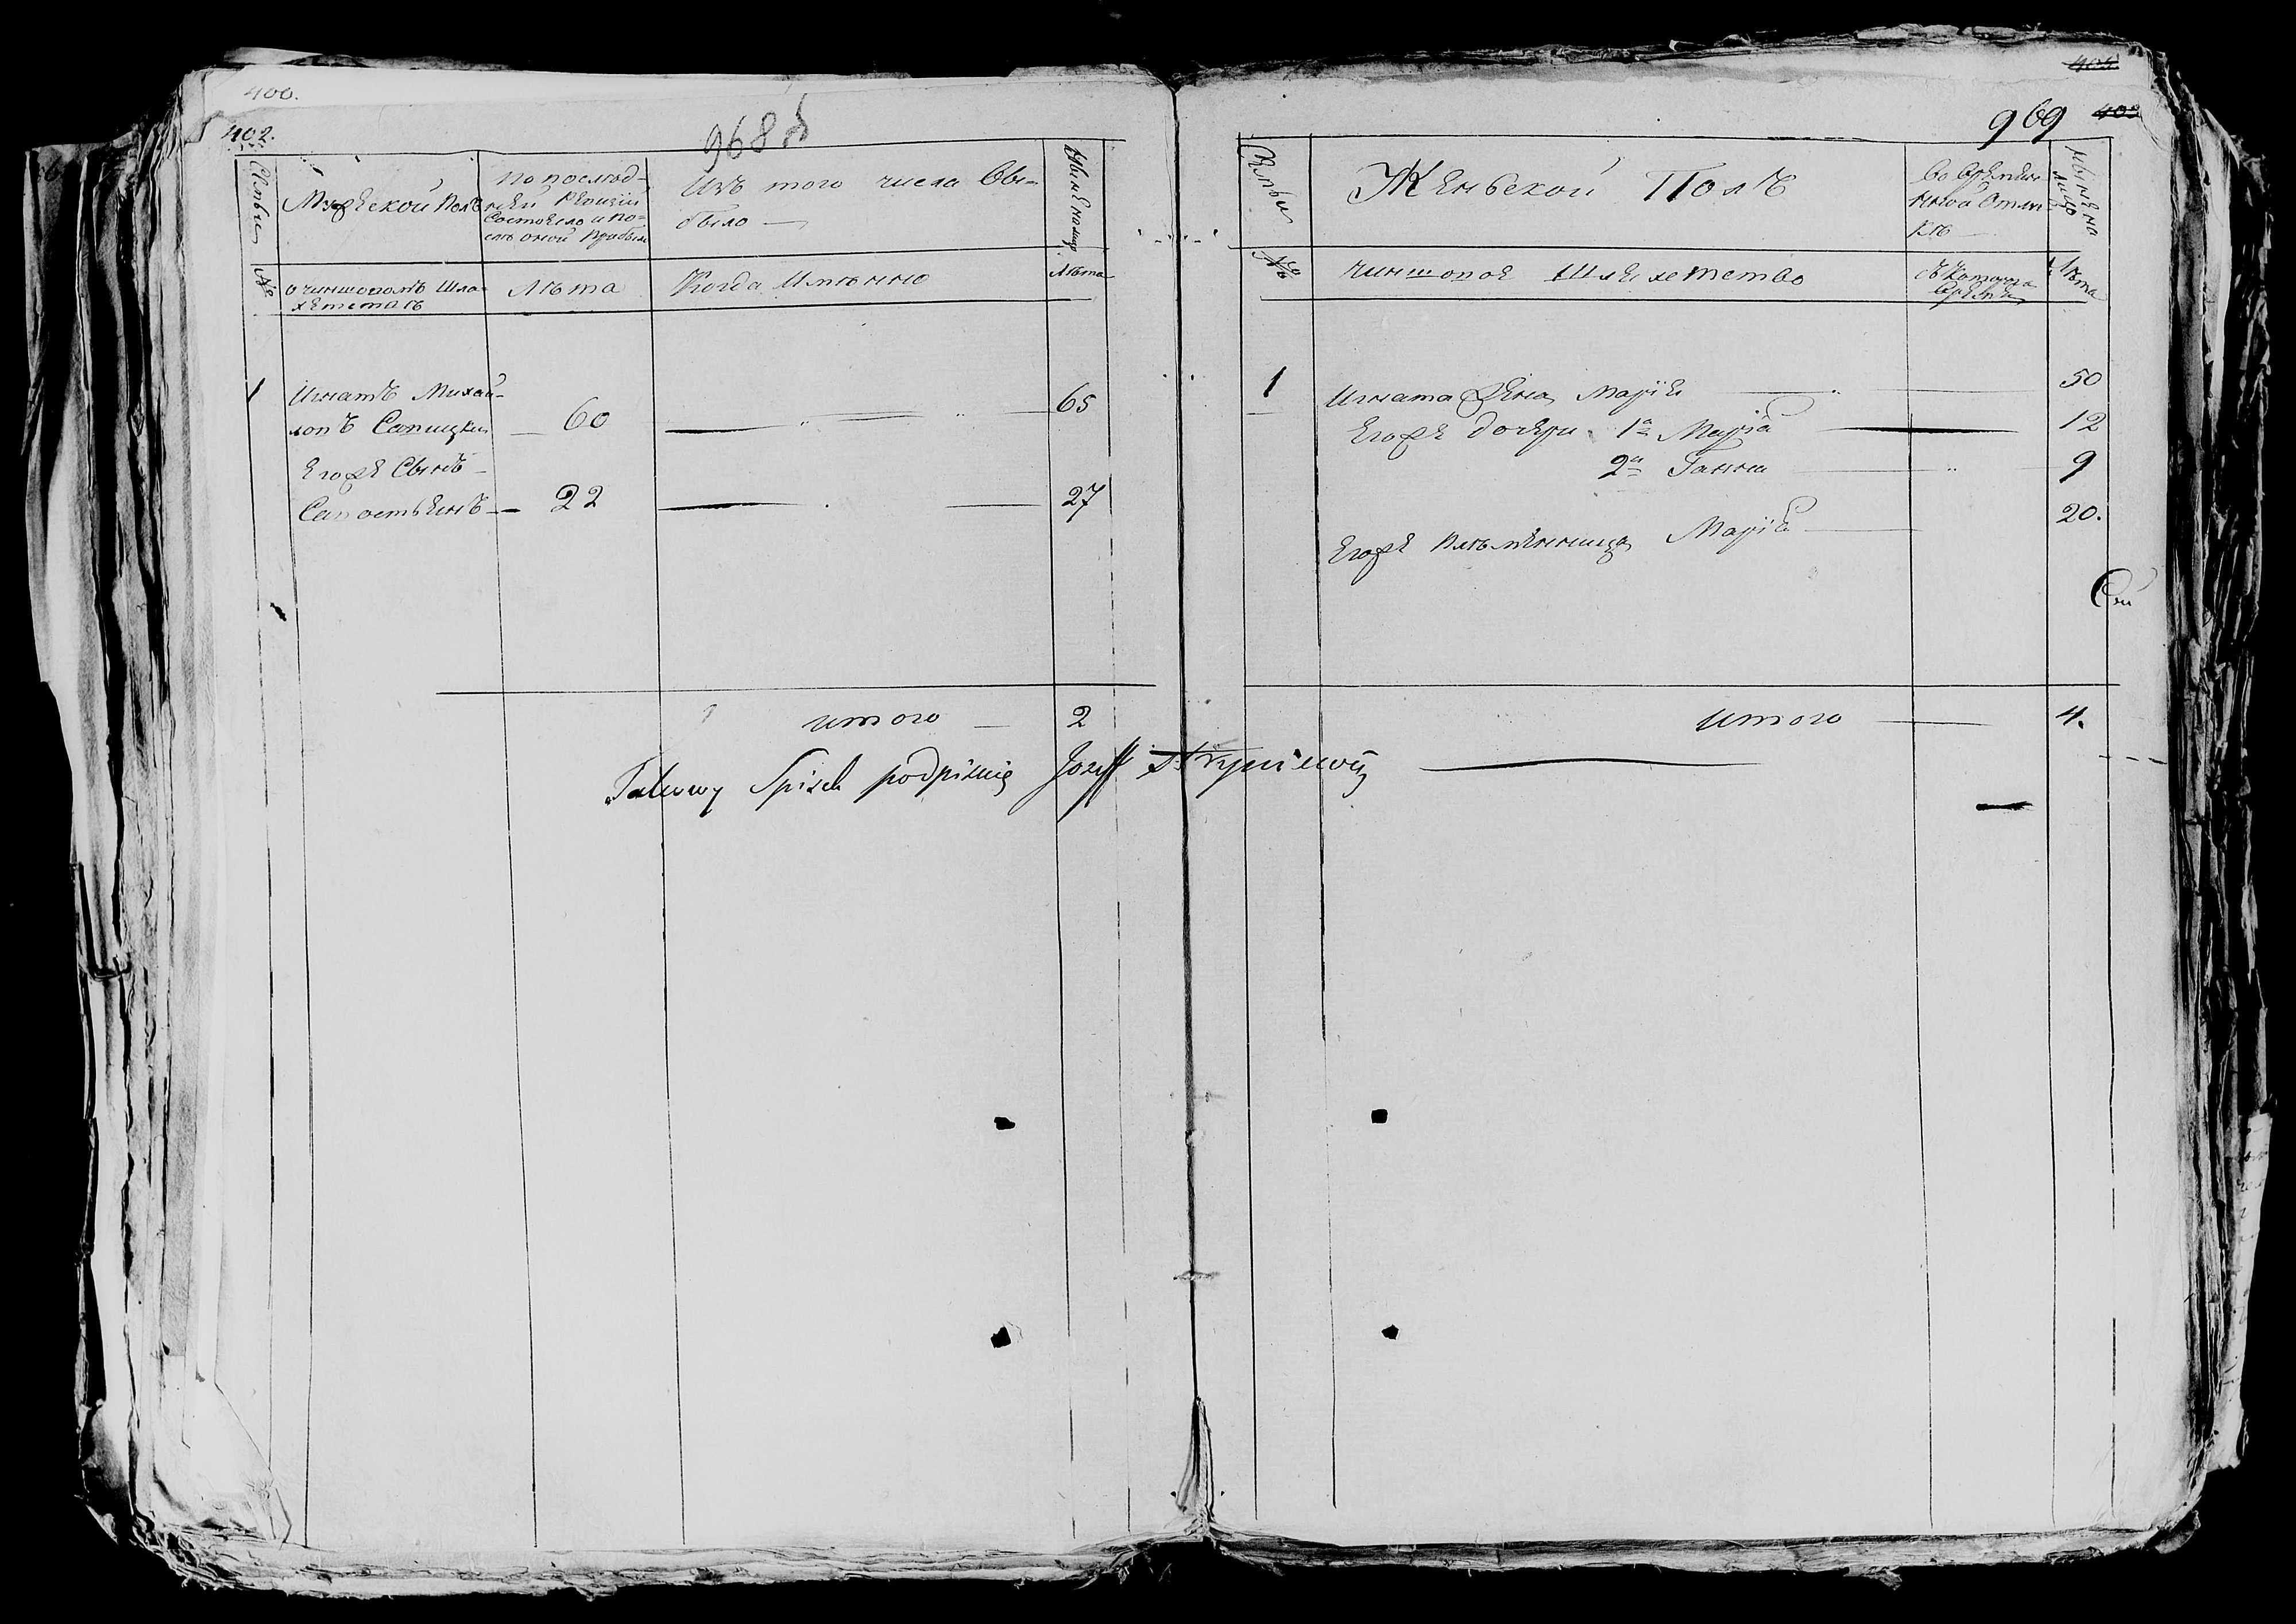 400.
402.
968
Семьи
Мужеской Полъ
По послед-
ней Ревизіи
Состояло и по-
слѣ оной прибыло
Изъ того числа Вы-
было
Нынѣ на лицо
№
о чиншовомъ Шля-
хетствѣ
Лѣта
Когда Имѣнно
Лѣта
1
Игнатъ Михай-
ловъ Савицкій
60
65
Егоже Сынъ
Савостьянъ
22
27
итого
2
Takowy Spisek podpisuię Jozeff
969
Семьи
Женьской Полъ
Во времян-
нной Отлуч-
кѣ
Нынѣ на
лицо
№
чиншовое Шляхетство
Съ Которого
Времени
Лѣта
1
Игната Жена Марія
50
Егоже дочери 1я Марія
12
2я Ганна
9
Егоже племѣнница Марія
20.
итого
4.